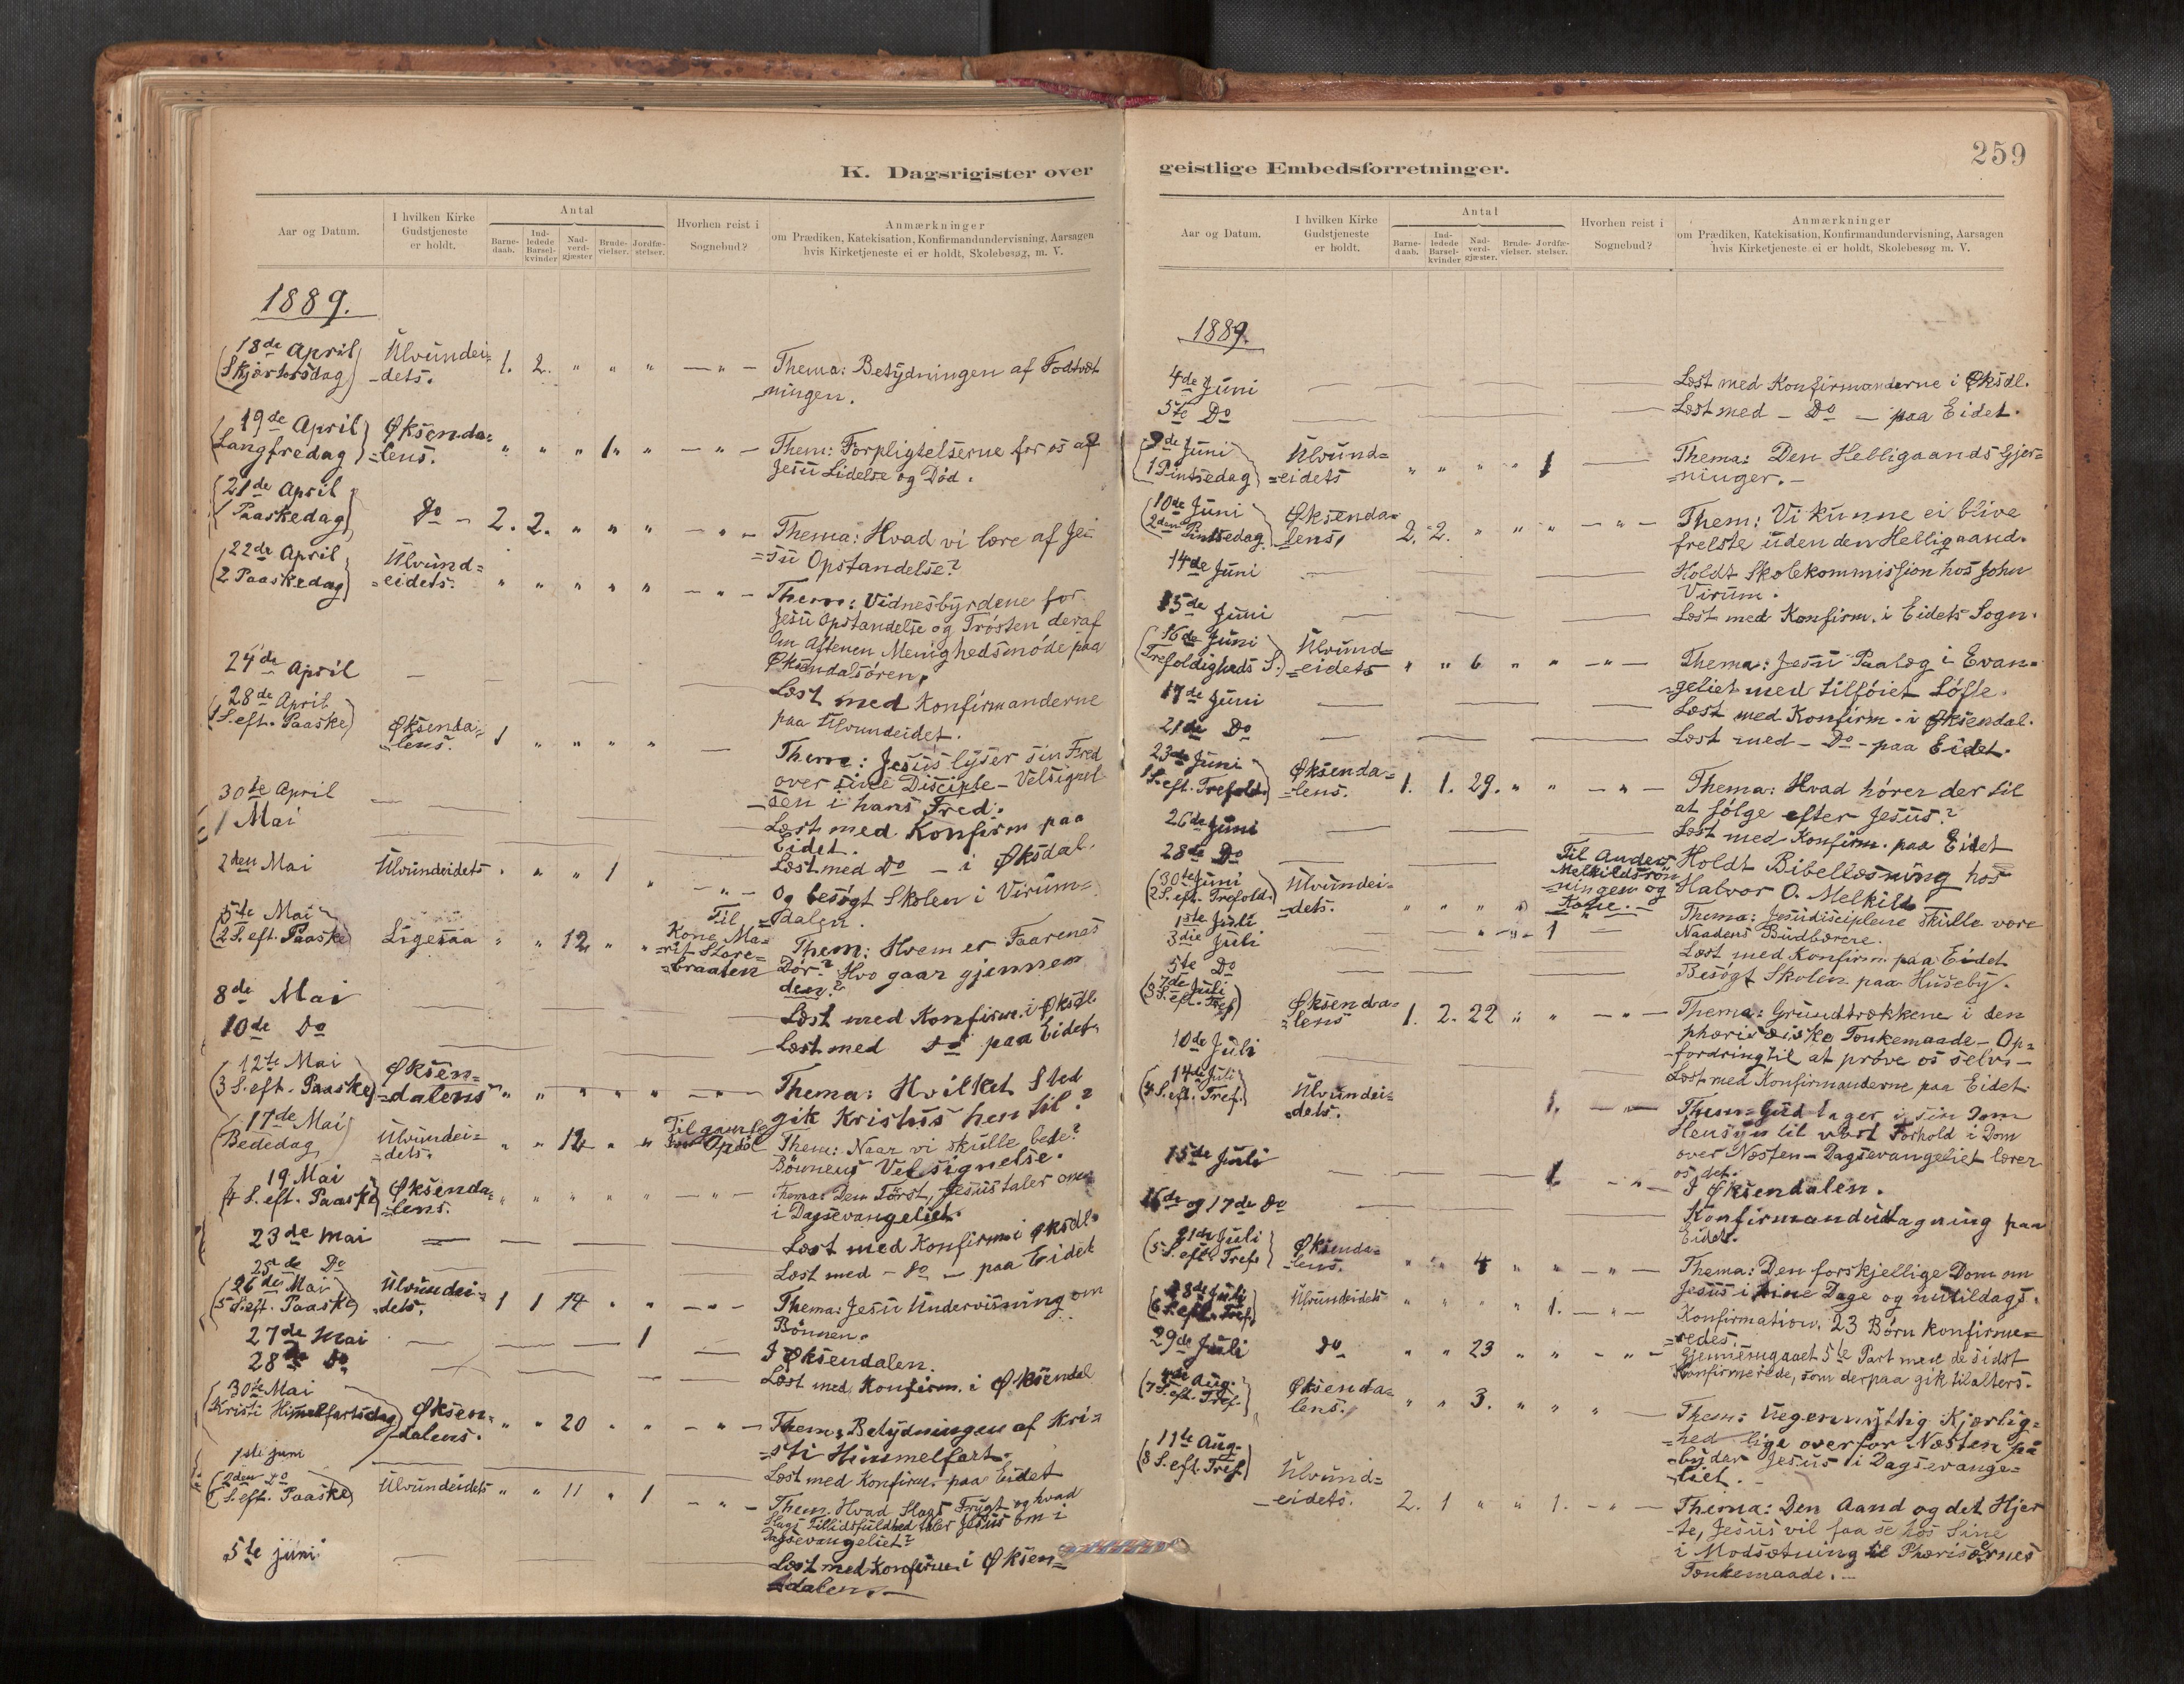 K. Dagsrigister over
Aar og Datum.
I hvilken Kirke
Gudstjeneste
er holdt.
Antal
Barne-
daab.
Ind-
ledede
Barsel-
kvinder
Nad-
verd-
gjæster
Brude-
vielser.
Jordfæ-
stelser.
Hvorhen reist i
Sognebud?
Anmærkninger
om Prædiken, Katekisation, Konfirmandundervisning, Aarsagen
hvis Kirketjeneste ei er holdt, Skolebesøg, m. V.
1889.
18de April
(Skjærtorsdag)
Ulvundei=
-dets.
1. 2. " " " — " —
Thema: Betydningen af Fodtvæt
ningen.
19de April
Langfredag
Øksenda=
=lens.
" " " 1 " " — " —
Them: Forpligtelserne for os af
Jesu Lidelse og Död.
21de April
1 Paaskedag
Do — 2. 2. " " " — " —
Thema: Hvad vi lære af Je=
=su Opstandelse?
22de April
2 Paaskedag
Ulvund=
=eidets.
" " " " " — " —
Them: Vidnesbyrdene for
Jesu Opstandelse og Trösten deraf
Om Aftenen Menighedsmöde paa
Øksendalsören.
24de April
Læst med Konfirmanderne
paa Ulvundeidet.
28de April
1 S. eft. Paaske
Øksenda=
=lens.
1 " " " " —
Them: Jesus lyser sin Fred
over sine Disciple — Velsignel
=sen i hans Fred.
30te April
Læst med Konfirm paa
Eidet.
1 Mai
Læst med Do — i Øksdal.
2den Mai
Ulvundeidets " " " 1 " — " —
Og besögt Skolen i Virum=
=dalen.
5te Mai
2 S. eft. Paaske
Ligesaa " " 12 " "
Til
Kone Ma=
=rit Store=
=braaten
Them: Hvem er Faarenes
Dör? Hvo gaar gjennem
den?
8de Mai
Læst med Konfirm. i Øksdl.
10de Do
Læst med Do paa Eidet.
12te Mai
3 S. eft. Paaske
Øksen=
=dalens " " " " " — " —
Thema: Hvilket Sted
gik Kristus hen til?
17de Mai
Bededag
Ulvundei=
=dets.
" " 12 " "
Til gamle
Opdöl
Them: Naar vi skulle bede?
Bönnens Velsignelse.
19 Mai
4 S. eft. Paaske
Øksenda=
=lens.
" " " " " — " —
Thema: Den Törst, Jesus taler om
i Dagsevangeliet.
23de Mai
Læst med Konfirm i Øksdl.
25de Do
Læst med — Do — paa Eidet
26de Mai
5 S. eft. Paaske
Ulvundei=
=dets.
1 1 14 " " — " —
Thema: Jesu Undervisning om
Bönnen.
27de Mai
1
I Øksendalen.
28de Do
Læst med Konfirm. i Øksendal
30te Mai
Kristi Himmelfartsdag
Øksen=
=dalens.
" " 20 " " — " —
Them: Betydningen af Kri=
=sti Himmelfart.
1ste juni
Læst med Konfirm. paa Eidet
2den Do
S. eft. Paaske
Ulvundeidets " " 11 " 1 — " —
Them. Hvad Slags Frygt og hvad
Slags Tillidsfuldhed taler Jesus om i
Dagsevangeliet?
5te juni
Læst med Konfirm i Øksen=
=dalen.
259
geistlige Embedsforretninger.
Aar og Datum.
I hvilken Kirke
Gudstjeneste
er holdt.
Antal
Barne-
daab.
Ind-
ledede
Barsel-
kvinder
Nad-
verd-
gjæster.
Brude-
vielser.
Jordfæ-
stelser.
Hvorhen reist i
Sognebud?
Anmærkninger
om Prædiken, Katekisation, Konfirmandundervisning, Aarsagen
hvis Kirketjeneste ei er holdt, Skolebesøg m. V.
1889.
4de Juni
Læst med Konfirmanderne i Øksdl.
5te Do
Læst med — Do — paa Eidet.
9de Juni
1 Pintsedag
Ulvund=
=eidets
" " " " 1 —
Thema: Den Helligaands Gjer=
=ninger. —
10de Juni
2den Pintsedag
Øksenda=
lens,
2. 2. " " " — " —
Them: Vi kunne ei blive
frelste uden den Helligaand.
14de Juni
Holdt Skolekommission hos John
Virum.
15de Juni
Læst med Konfirm. i Eidets Sogn.
16de Juni
Trefoldigheds S.
Ulvund=
=eidets " " 6 " " — " —
Thema: Jesu Paalæg i Evan=
=geliet med tilföiet Löfte.
17de Juni
Læst med Konfirm. i Øksendal.
21de Do
Læst med — Do — paa Eidet.
23de Juni
1 S. eft. Trefold.
Øksenda=
=lens.
1. 1. 29. " " — " —
Thema: Hvad hörer der til
at fölge efter Jesus?
26de Juni
Læst med Konfirm. paa Eidet
28de Do
Til Anders
Melkildsrön
=ningen og
Kone. —
Holdt Bibellæsning hos
Halvor O. Melkild
30te Juni
2 S. eft. Trefold.
Ulvundei=
=dets.
" " " " "
Thema: Jesu disciplene skulle være
Naadens Budbærere.
1ste Juli
1
3die Juli
Læst med Konfirm. paa Eidet
5te Do
Besögt Skolen paa Huseby.
7de Juli
3 S. eft. Tref
Øksenda=
=lens
1. 2. 22 " " — " —
Thema: Grundtrækkene i den
phariseiske Tænkemaade — Op=
=fordring til at pröve os selv. —
10de Juli
Læst med Konfirmanderne paa Eidet.
14de Juli
4 S. eft. Tref.
Ulvundei=
=dets.
1. — " —
Them: Gud tager i sin Dom
Hensyn til vort Forhold i Dom
over Næsten — Dagsevangeliet lærer
os det.
15de Juli
1. — " —
I Øksendalen.
16de og 17de Do
Konfirmandudtagning paa
Eidet.
21de Juli
5 S. eft. Tref.
Øksenda=
lens.
" " 4 " " — " —
Thema: Den forskjellige Dom om
Jesus i sine Dage og nutildags.
28de Juli
6 S. eft. Tref.
Ulvundeidets " " " " 1. — " —
Konfirmation. 23 Börn konfirme=
=redes.
29de Juli
Do " " 23 " " — " —
Gjennemgaaet 5te Part med de sidst
Konfirmerede, som derpaa gik tilalters.
4de Aug.
7 S. eft. Tref.
Øksenda=
lens.
" " 3. " " " —
Them: Uegennyttig Kjærlig=
=hed lige overfor Næsten på
=byder Jesus i Dagsevange=
=liet. —
11te Aug.
8 S. eft. Tref.
Ulvund=
=eidets.
2. 1 " " 1. — " —
Thema: Den Aand og det Hjer
=te, Jesus vil faa se hos Sine
i Modsætning til Phariseernes
Tænkemaade. —